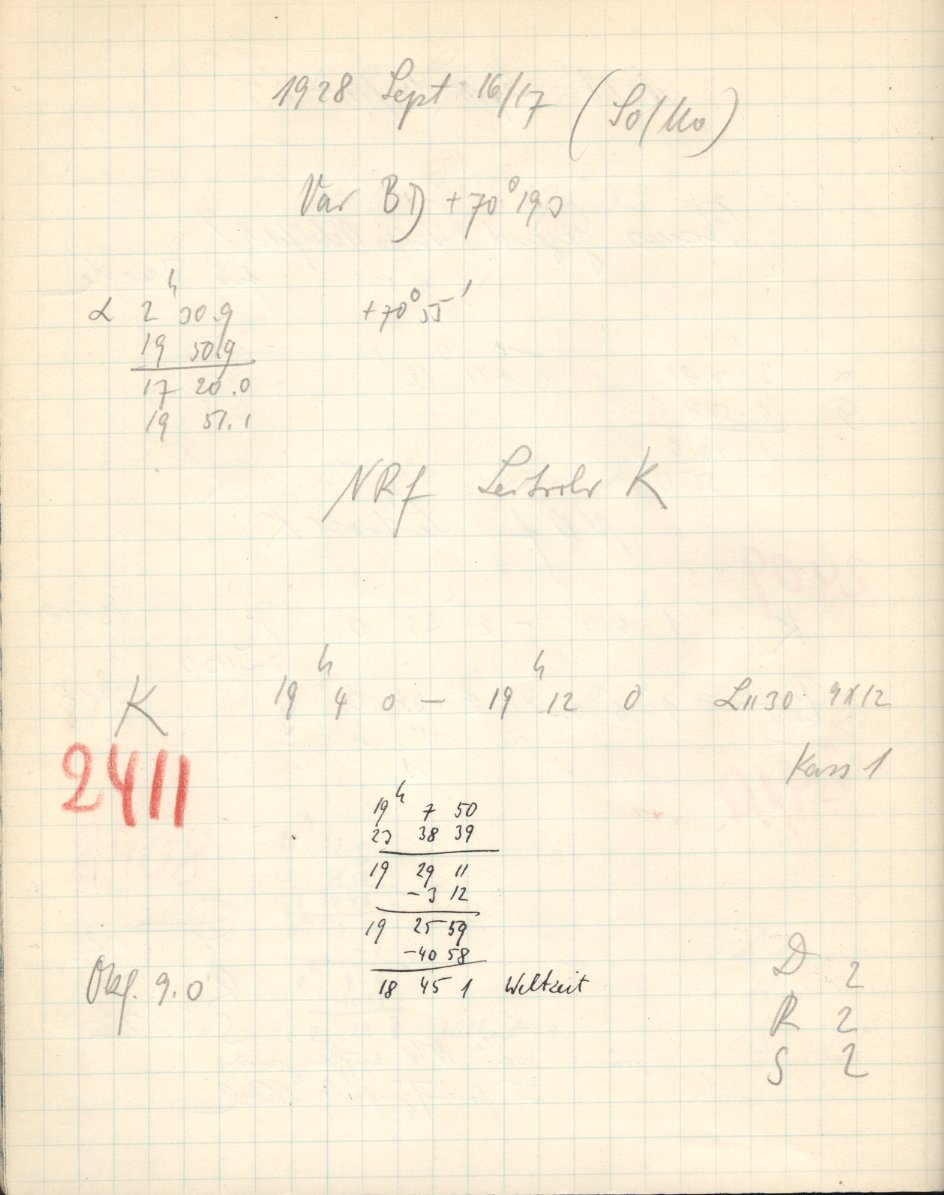 1928 Sept 16/17 (So/Mo)
Var BD +70° 190
α 2h 30.9 +70° 55'
19 50.9
17 20.0
19 51.1
NRf Leitrohr K
K 19h 4 0 — 19h 12 0 9x12
2411
Kass 1
19h 7 50
23 38 39
19 29 11
-3 12
19 25 59
-40 58
18 45 1 Weltzeit
9.0
D 2
R 2
S 2